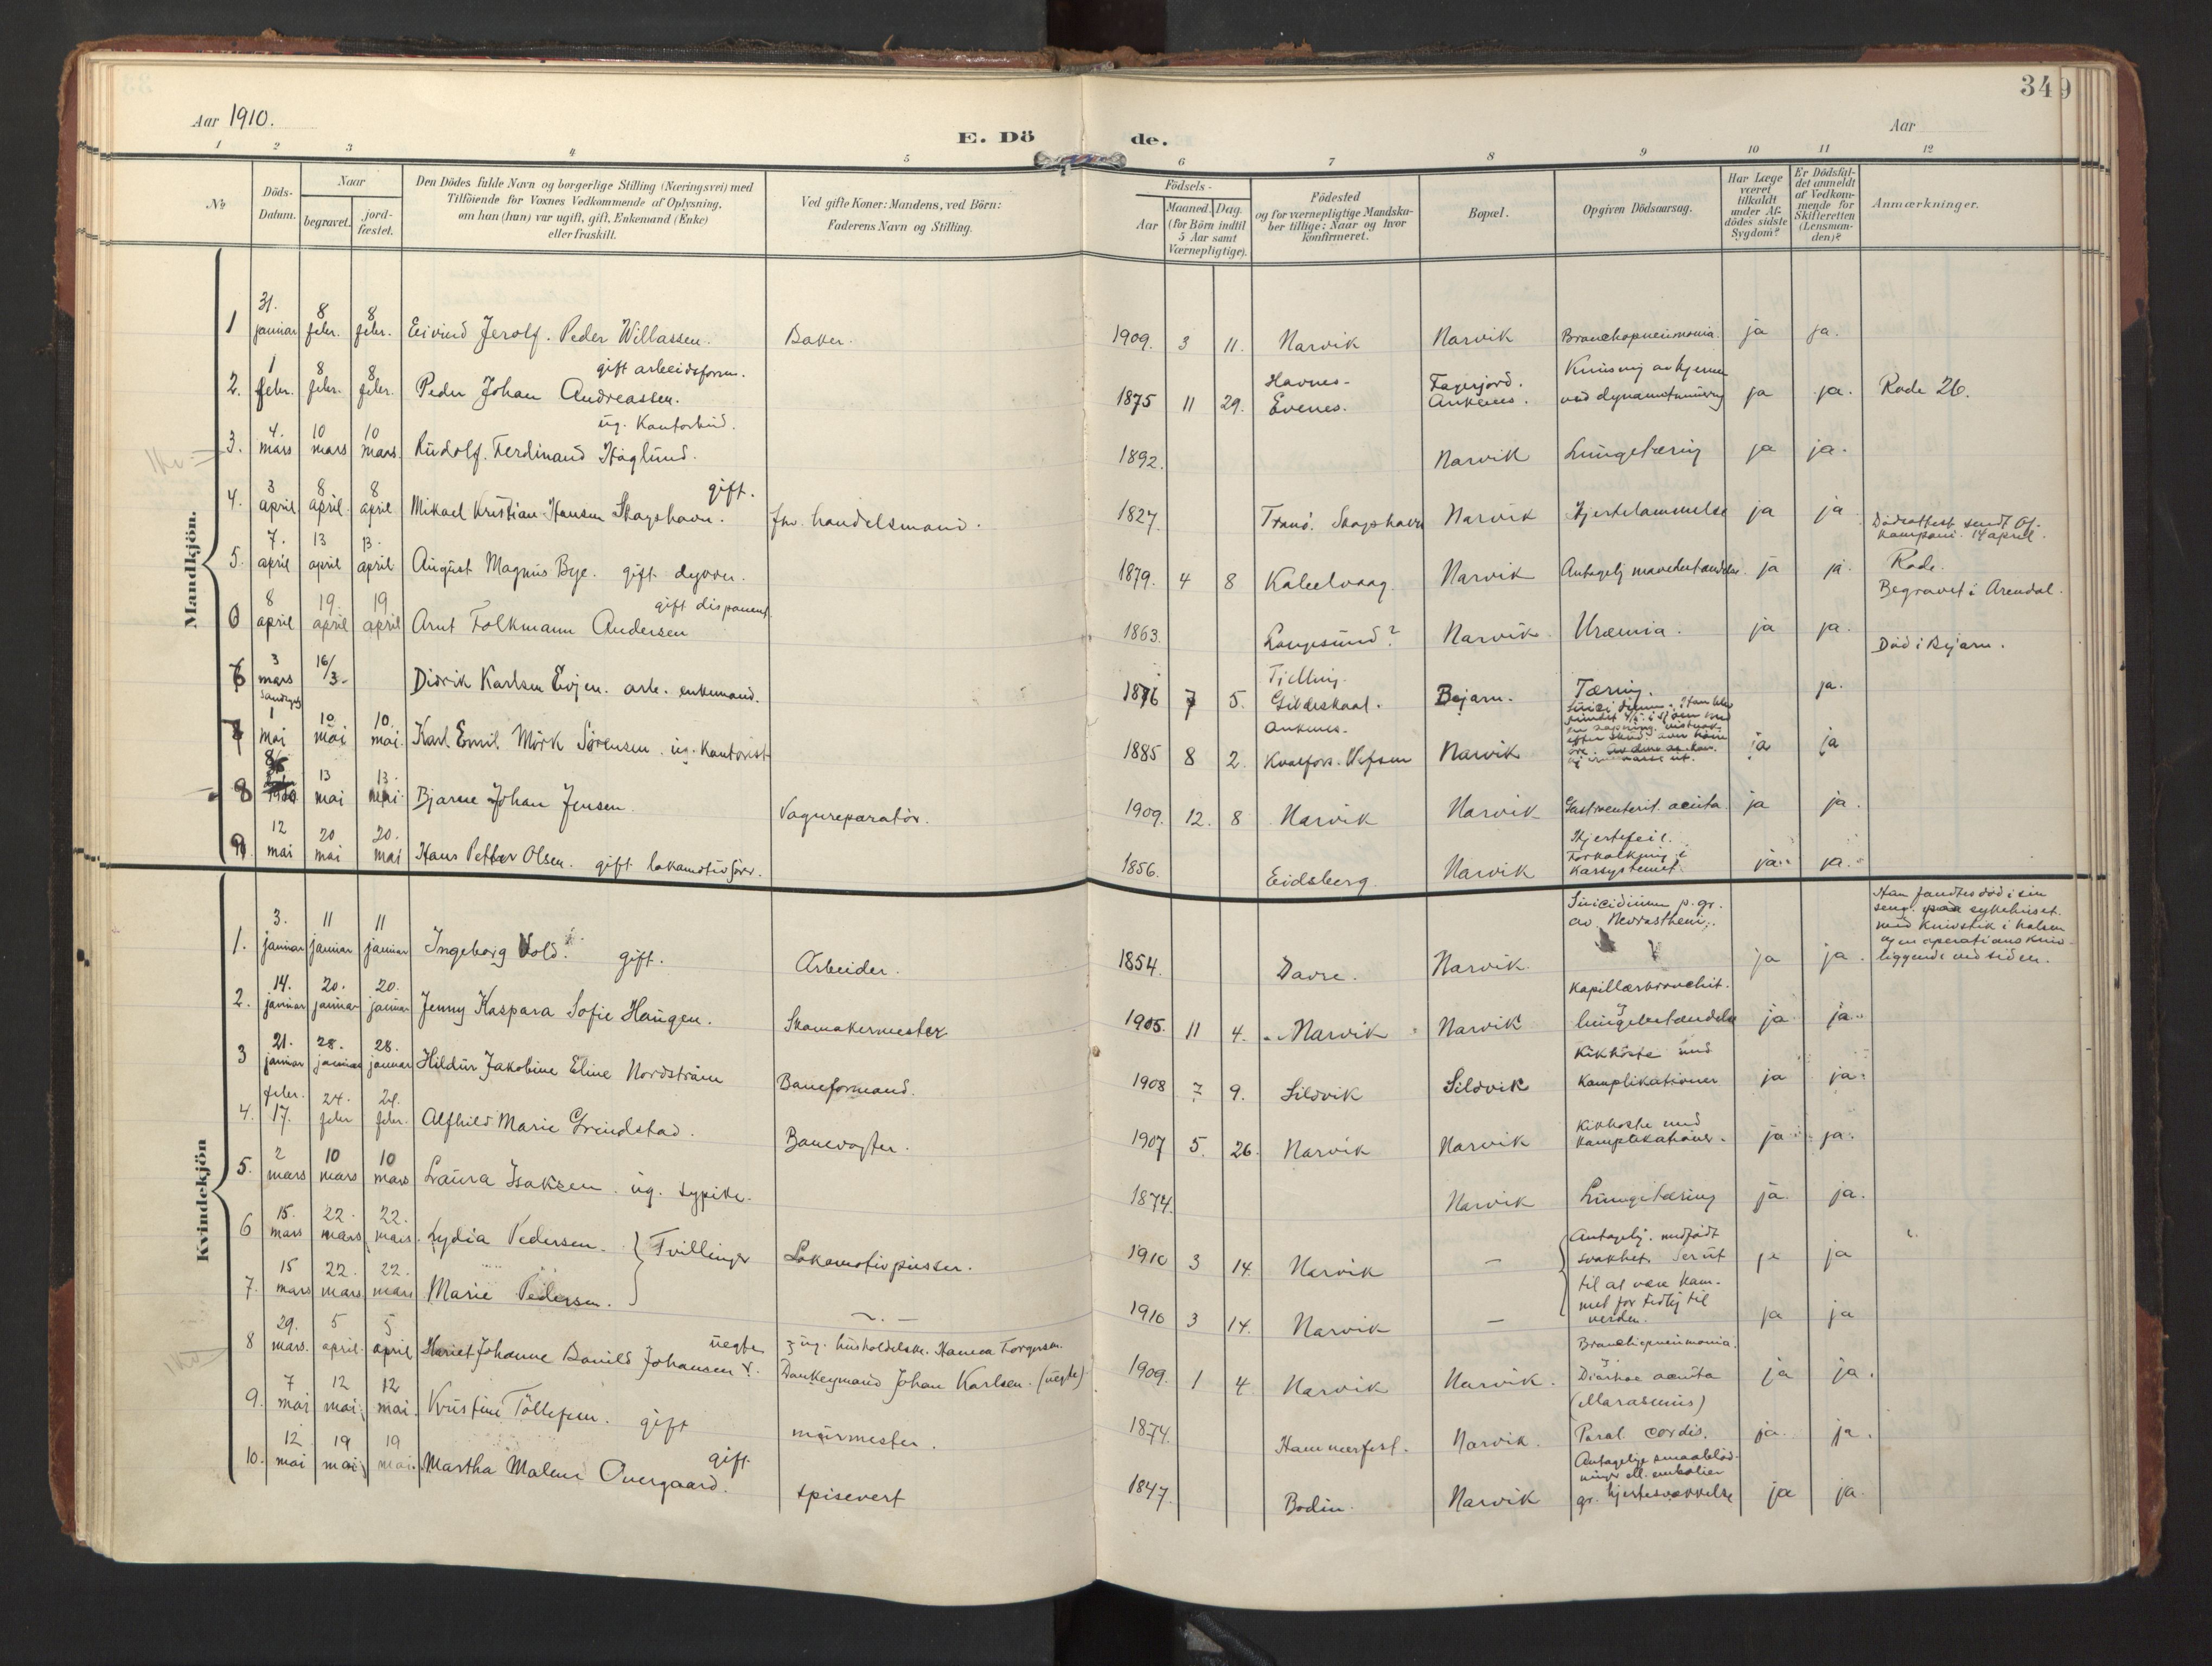 349
Aar 1910.
E. Dö de.
Aar
1 2 3 4 5 6 7 8 9 10 11 12
No
Döds-Datum.
Naar
begravet.
jord-fæstet.
Den Dödes fulde Navn og borgerlige Stilling (Næringsvei) med
Tilföiende for Voxnes Vedkommende af Oplysning,
om han (hun) var ugift, gift, Enkemand (Enke)
eller fraskilt.
Ved gifte Koner: Mandens, ved Börn:
Faderens Navn og Stilling.
Födsels-
Aar
Maaned. Dag.
(for Börn indtil
5 Aar samt
Værnepligtige).
Födested
og for værnepligtige Mandska-
ber tillige: Naar og hvor
konfirmeret.
Bopæl.
Opgiven Dödsaarsag.
Har Læge
været
tilkaldt
under Af-
dödes sidste
Sygdom?
Er Dödsfal-
det anmeldt
af Vedkom-
mende for
Skifteretten
(Lensman-
den)?
Anmærkninger.
Mandkjön.
1 31. januar 8 febr. 8 febr. Eivind Jerolf. Peder Willassen. Baker. 1909. 3 11. Narvik Narvik Bronchopneumonia. ja ja.
gift arbeidsform.
2. 1 febr. 8 febr. 8 febr. Peder Johan Andreassen. 1875 11 29. Havnes- Evenes. Fagerjord. Ankenes. Knusing av hjernen ved dynamitminering ja ja. Rode 26.
ug. Kontorbud.
3. 4. mars 10 mars 10 mars Rudolf. Ferdinand Höglund. 1892. Narvik Lungetæring ja ja.
gift.
4. 3 april 8 april. 8 april Mikael Kristian Hansen Skagshavn. fhv. handelsmand. 1827. Tranö. Skagshavn Narvik Hjertelammelse ja ja
Dödsattest sendt Of. kompani. 14 april.
5. 7. april 13 april 13. april August Magnus Bye. gift dyvver. 1879. 4 8 Kabelvaag Narvik Antagelig mavebetændelse. ja ja. Rode.
gift disponent
6 8 april 19. april 19 april Arnt Folkmann Andersen 1863. Langesund? Narvik Uræmia. ja ja. Begravet i Arendal.
6 3 mars 16/3- Didrik Karlsen Evjen. arb. enkemand. 1876 7 5. Gildeskaal. Bejarn. Tæring. ja. Död i Bejarn.
7 1 mai 10 mai 10. mai. Karl Emil Mörk Sörensen. ug. Kontorist 1885 8 2. Ankenes. Kvalfors. Vefsen Narvik ja ja
8 13 mai 13. mai. Bjarne Johan Jensen. Vognreparatör. 1909. 12. 8 Narvik Narvik Gastroenterit. acuta. ja ja.
9. 12 mai 20 mai 20. mai Hans Petter Olsen. gift lokomotivförer. 1856. Eidsberg. Narvik Hjertefeil. Forkalkning i karsystemet. ja. ja.
Kvindekjön
1. 3. januar 11 januar 11 januar Ingeborg Vold. gift. Arbeider. 1854. Dovre. Narvik. Suicidium p. gr. av Nevrastheni. ja ja.
Han fandtes död i sin
seng paa sykehuset.
med knivstik i halsen
og en operationskniv
liggende ved siden.
2. 14. januar 20. januar 20. januar Jenny Kaspara Sofie Haugen. Skomakermester 1905. 11 4. Narvik Narvik Kapillærbronchit. og lungebetændelse ja ja.
3 21. januar 28. januar 28. januar Hildur Jakobine Eline Nordström Baneformand. 1908 7 9. Sildvik Sildvik Kikhoste med Komplikationer ja ja.
4. febr. 17. 24. febr 24. febr. Alfhild Marie Grindstad. Banevogter. 1907 5. 26. Narvik Narvik Kikhoste med komplikationer. ja ja.
5. 2 mars 10 mars 10 mars Laura Isaksen. ug. sypike. 1874. Narvik Lungetæring ja. ja.
6 15. mars 22. mars 22. mars. Lydia Pedersen. } Tvillinger Lokomotivpusser. 1910 3 14. Narvik — Antagelig. medfödt svakhet. Ser ut ja ja
7. 15 mars 22. mars 22. mars Marie Pedersen. — 1910 3 14. Narvik — til at være kom-met for tidlig til verden. ja ja
8 29. mars. 5 april. 5 april Hariet Johanne Bonild Johansen uegte ug. husholderske. Hanna Torgersen. Donkeymand Johan Karlsen. (uegte) 1909. 1 4 Narvik Narvik. Bronchopneumonia. og Diarhoe acuta (Marasmus) ja ja.
9. 7 mai 12 mai. 12 mai. Kristine Tollefsen. gift murmester. 1874. Hammerfest. Narvik. Paral. cordis. ja. ja.
gift
10. 12. mai 19 mai 19 mai. Martha Malene Overgaard. spisevert 1847. Bodin. Narvik Antagelige smaablöd-ninger ell. embolier gr. hjertesvækkelse ja ja.